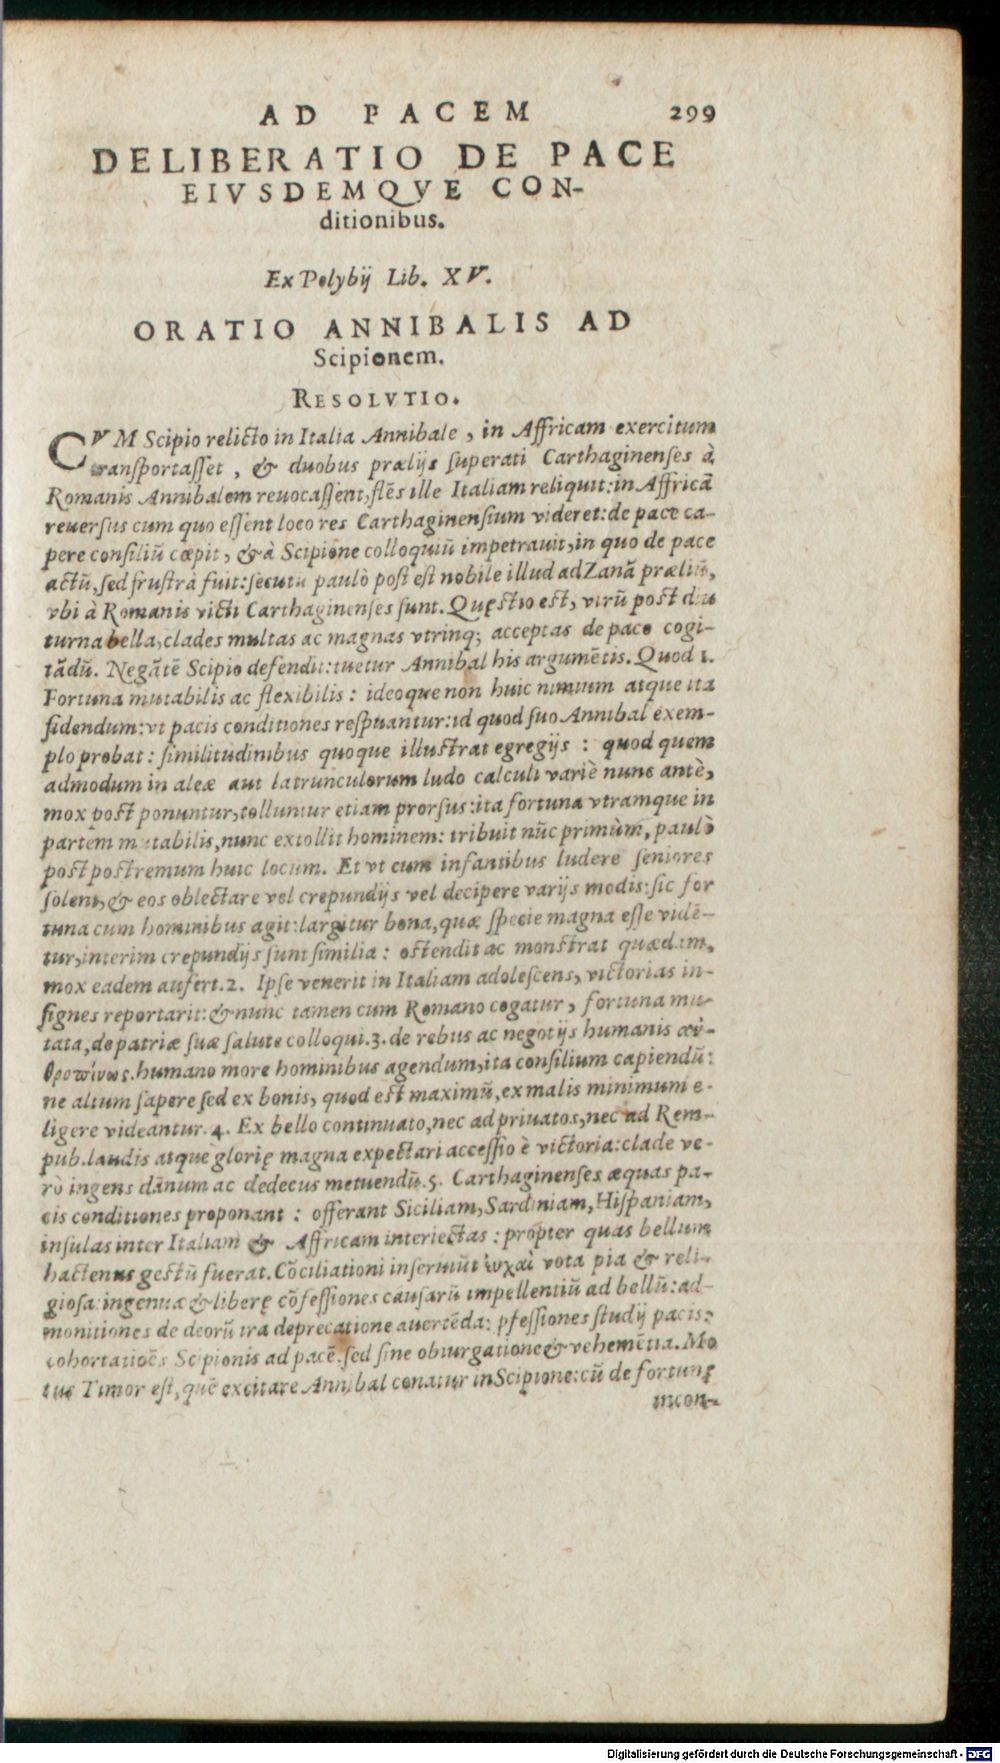 AD PACEM 299
DELIBERATIO DE PACE
EIVSDEMQVE CON-
ditionibus.
Ex Polybij Lib. XV.
ORATIO ANNIBALIS AD
Scipionem.
RESOLVTIO.
CVM Scipio relicto in Italia Annibale, in Affricam exercitum
transportasset, & duobus prælijs superati Carthaginenses à
Romanis Annibalem reuocassent, flēs ille Italiam reliquit: in Affricā
reuersus cum quo essent loco res Carthaginensium videret: de pace ca-
pere consiliū cœpit, & à Scipione colloquiū impetrauit, in quo de pace
actū, sed frustrà fuit: secutu paulò post est nobile illud ad Zanā præliū,
vbi à Romanis victi Carthaginenses sunt. Quęstio est, vtrū post diu
turna bella, clades multas ac magnas vtrinq; acceptas de pace cogi-
tādū. Negātē Scipio defendit: tuetur Annibal his argumētis. Quod 1.
Fortuna mutabilis ac flexibilis: ideoque non huic nimium atque ita
fidendum: vt pacis conditiones respuantur: id quod suo Annibal exem-
plo probat: similitudinibus quoque illustrat egregijs: quod quem
admodum in aleæ aut latrunculorum ludo calculi variè nunc antè,
mox post ponuntur, tolluntur etiam prorsus: ita fortuna vtramque in
partem mutabilis, nunc extollit hominem: tribuit nūc primùm, paulò
post postremum huic locum. Et vt cum infantibus ludere seniores
solent, & eos oblectare vel crepundijs vel decipere varijs modis: sic for
tuna cum hominibus agit: largitur bona, quæ specie magna esse vidē-
tur, interim crepundijs sunt similia: ostendit ac monstrat quædam,
mox eadem aufert. 2. Ipse venerit in Italiam adolescens, victorias in-
signes reportarit: & nunc tamen cum Romano cogatur, fortuna mu-
tata, de patriæ suæ salute colloqui. 3. de rebus ac negotijs humanis ἀν-
θροπίνως. humano more hominibus agendum, ita consilium capiendū:
ne altum sapere sed ex bonis, quod est maximū, ex malis minimum e-
ligere videantur. 4. Ex bello continuato, nec ad priuatos, nec ad Rem-
pub. laudis atque glorię magna expectari accessio è victoria: clade ve-
rò ingens dānum ac dedecus metuendū. 5. Carthaginenses æquas pa-
cis conditiones proponant: offerant Siciliam, Sardiniam, Hispaniam,
insulas inter Italiam & Affricam interiectas: propter quas bellum
hactenus gestū fuerat. Cōciliationi inseruiūt ἐυχαὶ vota pia & reli-
giosa: ingenuæ & liberę cōfessiones causarū impellentiū ad bellū: ad-
monitiones de deorū ira deprecatione auertēda: pfessiones studij pacis:
cohortatioēs Scipionis ad pacē: sed sine obiurgatione & vehemētia. Mo
tus Timor est, quē excitare Annibal conatur in Scipione: cū de fortunę
incon-
Digitalisierung gefördert durch die Deutsche Forschungsgemeinschaft - DFG